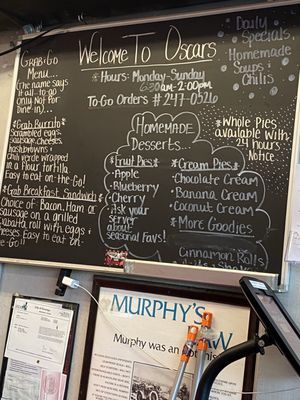 Grab & Go
Menu...
(The name says
it all...to go
only Not For
Dine in)...
*Grab Burrito*
Scrambled eggs,
Sausage, Cheeses,
hashbrowns &
Chili verde wrapped
in a flour tortilla
Easy to eat on the Go!
*Grab Breakfast Sandwich*
Choice of Bacon, Ham, or
Sausage on a grilled
Ciabatta roll with eggs &
Cheeses Easy to eat on-
the-Go!!
Welcome To Oscars
*Hours: Monday-Sunday
6:30am-2:00pm
To-Go Orders # 247-0526
Homemade
Desserts...
*Fruit Pies*
-Apple
-Blueberry
-Cherry
-Ask your
Server
about
Seasonal Favs!
*Cream Pies*
-Chocolate Cream
-Banana Cream
-Coconut Cream
*More Goodies*
Cinnamon Rolls
Daily
Specials
Homemade
Soups &
Chilis
*Whole Pies
available with
24 hours
Notice
Murphy's Law
Murphy was an